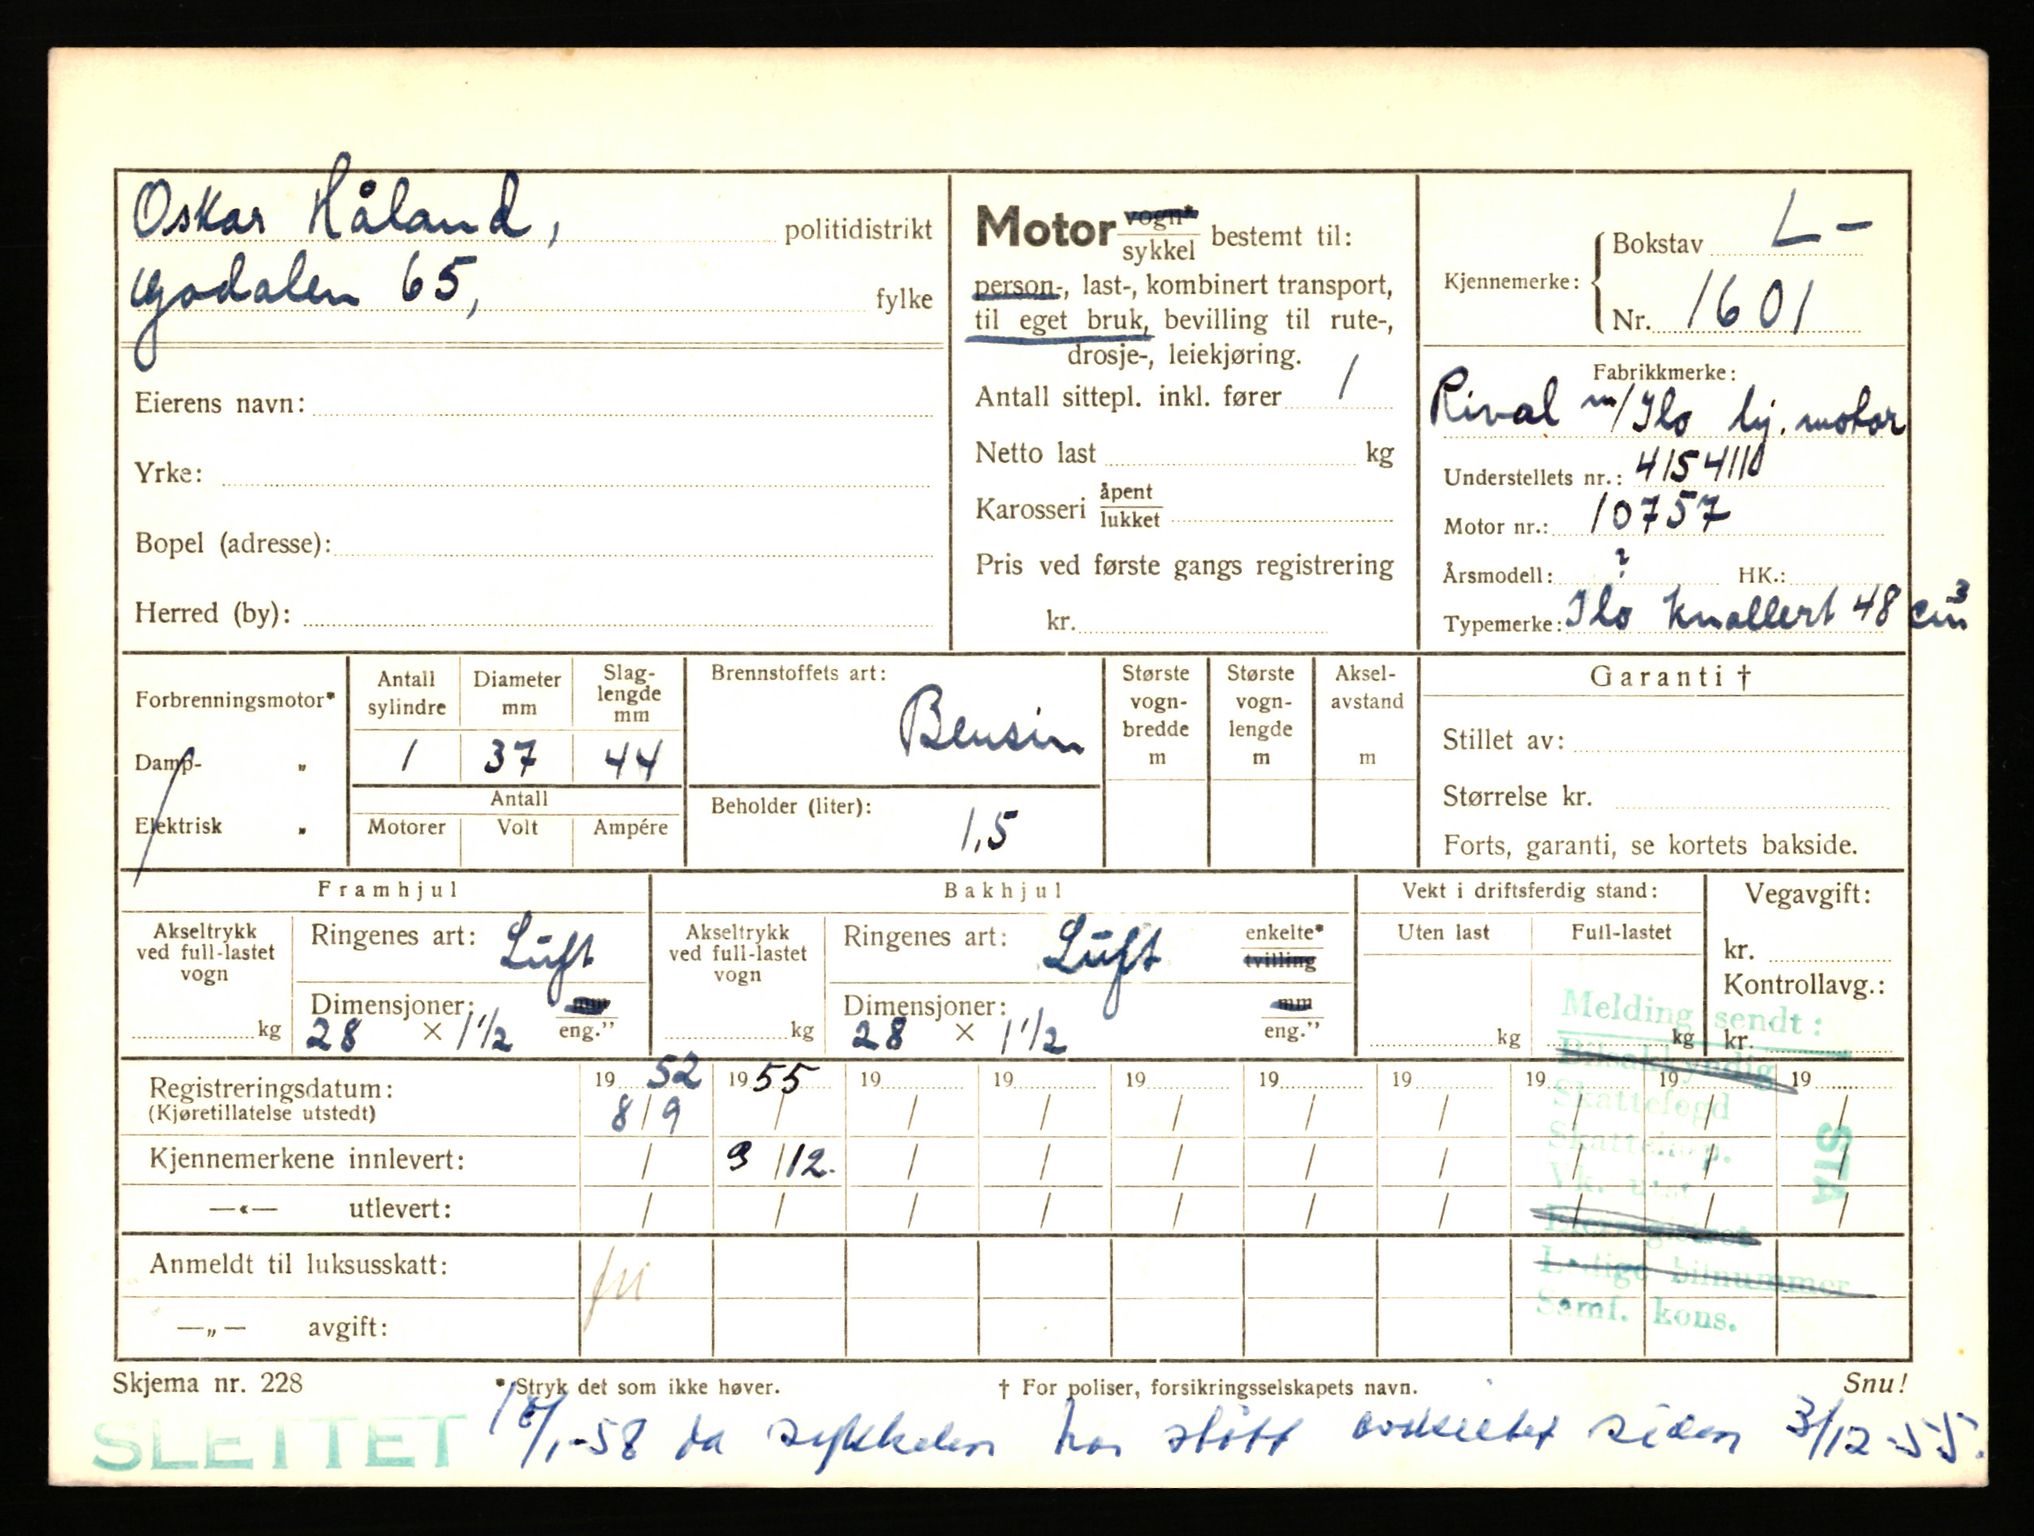 Oskar Håland, politidistrikt
Godalen 65, fylke
Eierens navn:
Yrke:
Bopel (adresse):
Herred (by):
Motor vogn*/sykkel bestemt til:
person-, last-, kombinert transport,
til eget bruk, bevilling til rute-,
drosje-, leiekjøring.
Antall sittepl. inkl. fører 1
Netto last kg
Karosseri åpent/lukket
Pris ved første gangs registrering
kr.
Kjennemerke: Bokstav L-
Nr. 1601
Fabrikkmerke:
Rival m/Ilo hj. motor
Understellets nr.: 4154110
Motor nr.: 10757
Årsmodell: ? HK.:
Typemerke: Ilo Knallert 48 cm³
Forbrenningsmotor*
Damp- „
Elektrisk „
Antall sylindre Diameter mm Slaglengde mm
1 37 44
Antall
Motorer Volt Ampére
Brennstoffets art:
Bensin
Beholder (liter):
1,5
Største vogn-bredde m
Største vogn-lengde m
Aksel-avstand m
Garanti †
Stillet av:
Størrelse kr.
Forts, garanti, se kortets bakside.
Framhjul
Akseltrykk ved full-lastet vogn
kg
Ringenes art: Luft
Dimensjoner: mm
28 × 1 1/2 eng."
Bakhjul
Akseltrykk ved full-lastet vogn
kg
Ringenes art: Luft enkelte* tvilling
Dimensjoner: mm
28 × 1 1/2 eng."
Vekt i driftsferdig stand:
Uten last Full-lastet
kg kg
Vegavgift:
kr.
Kontrollavg.:
kr.
Melding sendt:
Bilsakkyndig
Skattefogd
Ledige bilnummer
Samf. kons.
STA
Registreringsdatum: 19 52 19 55 19 19 19 19 19 19 19 19
(Kjøretillatelse utstedt) 8/9 / / / / / / / / /
Kjennemerkene innlevert: / 3/12. / / / / / / / /
—«— utlevert: / / / / / / / / / /
Anmeldt til luksusskatt:
—„— avgift:
Skjema nr. 228 * Stryk det som ikke høver. † For poliser, forsikringsselskapets navn. Snu!
SLETTET 18/1-58 da sykkelen har stått avskiltet siden 3/12-55.